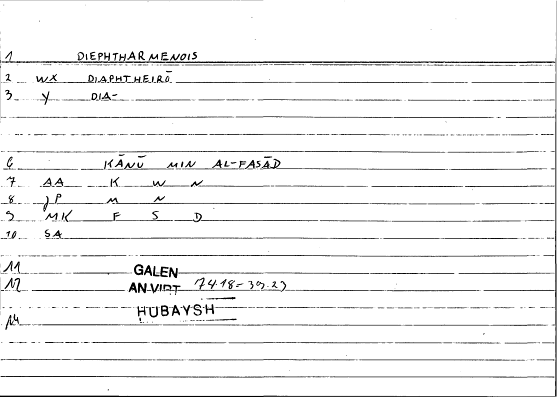 1 DIEPHTHARMENOIS
2 WX DIAPHTHEIRŌ
3 Y DIA-
6 KĀNŪ MIN AL-FASĀD
7 AA K W N
8 JP M N
9 MK F S D
10 SA
11 GALEN
12 AN.VIRT 74.18-39.29
HUBAYSH
14